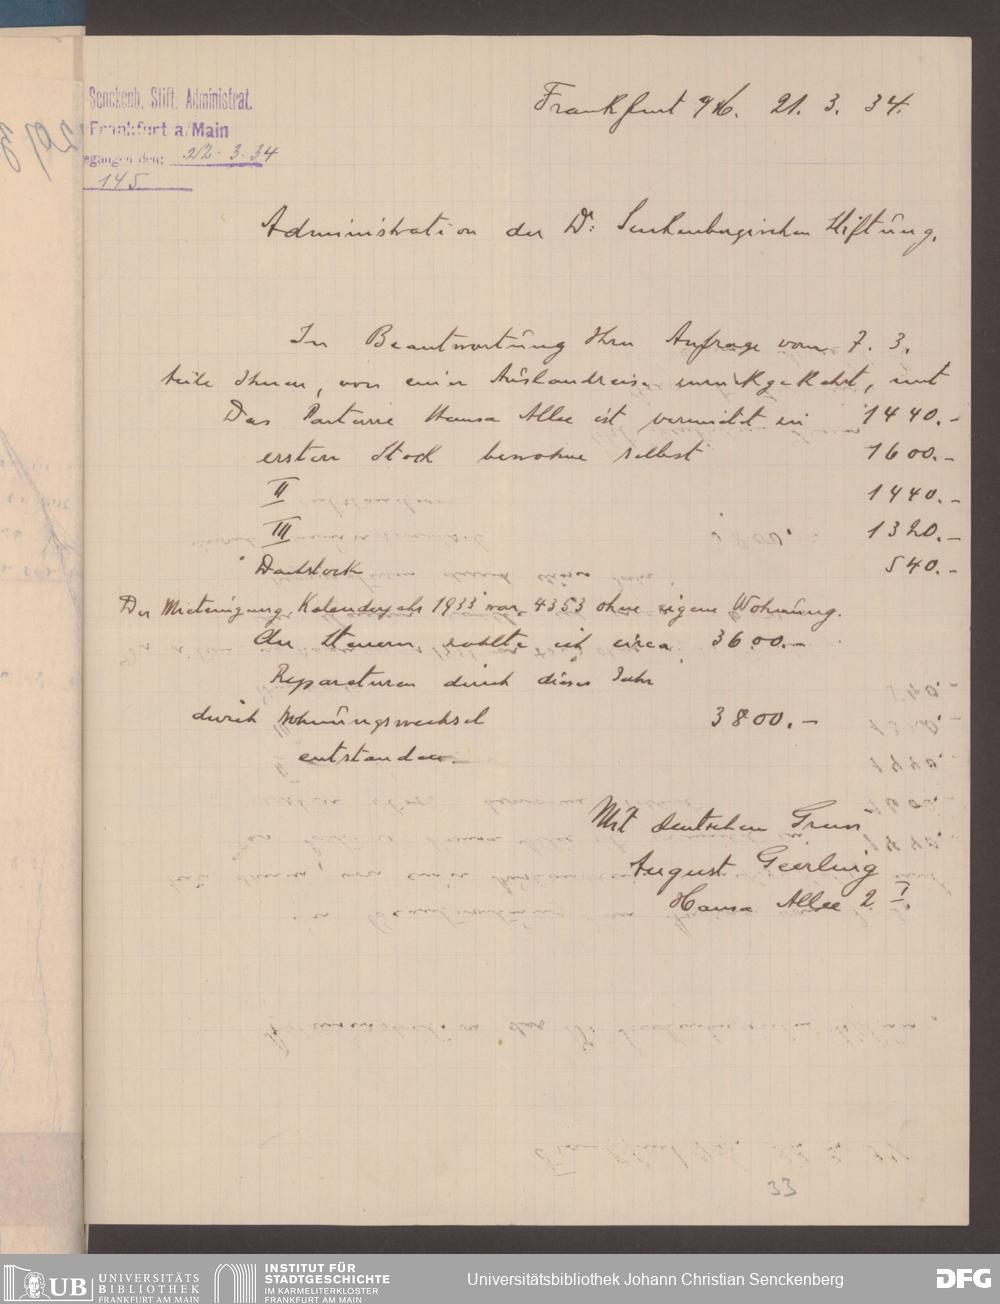 Senckenb. Stift. Administrat.
Frankfurt a/Main
egangen den: 22. 3. 34
145
Frankfurt a/M. 21. 3. 34.
Administration der Dr. Senkenbergischen Stiftung.
In Beantwortung Ihrer Anfrage vom 7. 3.
teile Ihnen, von einer Auslandreise zurückgekehrt, mit
Das Parterre Hansa Allee ist vermietet zu 1440.-
ersten Stock bewohne selbst 1600.-
II 1440.-
III 1320.-
Dachstock 540.-
Der Mieteingang Kalenderjahr 1933 war 4353 ohne eigene Wohnung.
An Steuern zahlte ich circa 3600.-
Reparaturen durch dieses Jahr
durch Wohnungswechsel 3800.-
entstanden.
Mit deutschem Gruss
August Geerling
Hansa Allee 2 I.
33
UB UNIVERSITÄTS
BIBLIOTHEK
FRANKFURT AM MAIN
INSTITUT FÜR
STADTGESCHICHTE
IM KARMELITERKLOSTER
FRANKFURT AM MAIN
Universitätsbibliothek Johann Christian Senckenberg
DFG